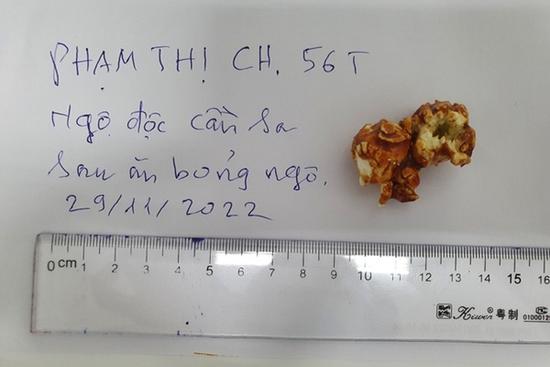 PHẠM THỊ CH. 56T
Ngộ độc cần sa
sau ăn bỏng ngô.
29/11/2022
0 cm 1 2 3 4 5 6 7 8 9 10 11 12 13 14 15 16
Kiwen 粤制